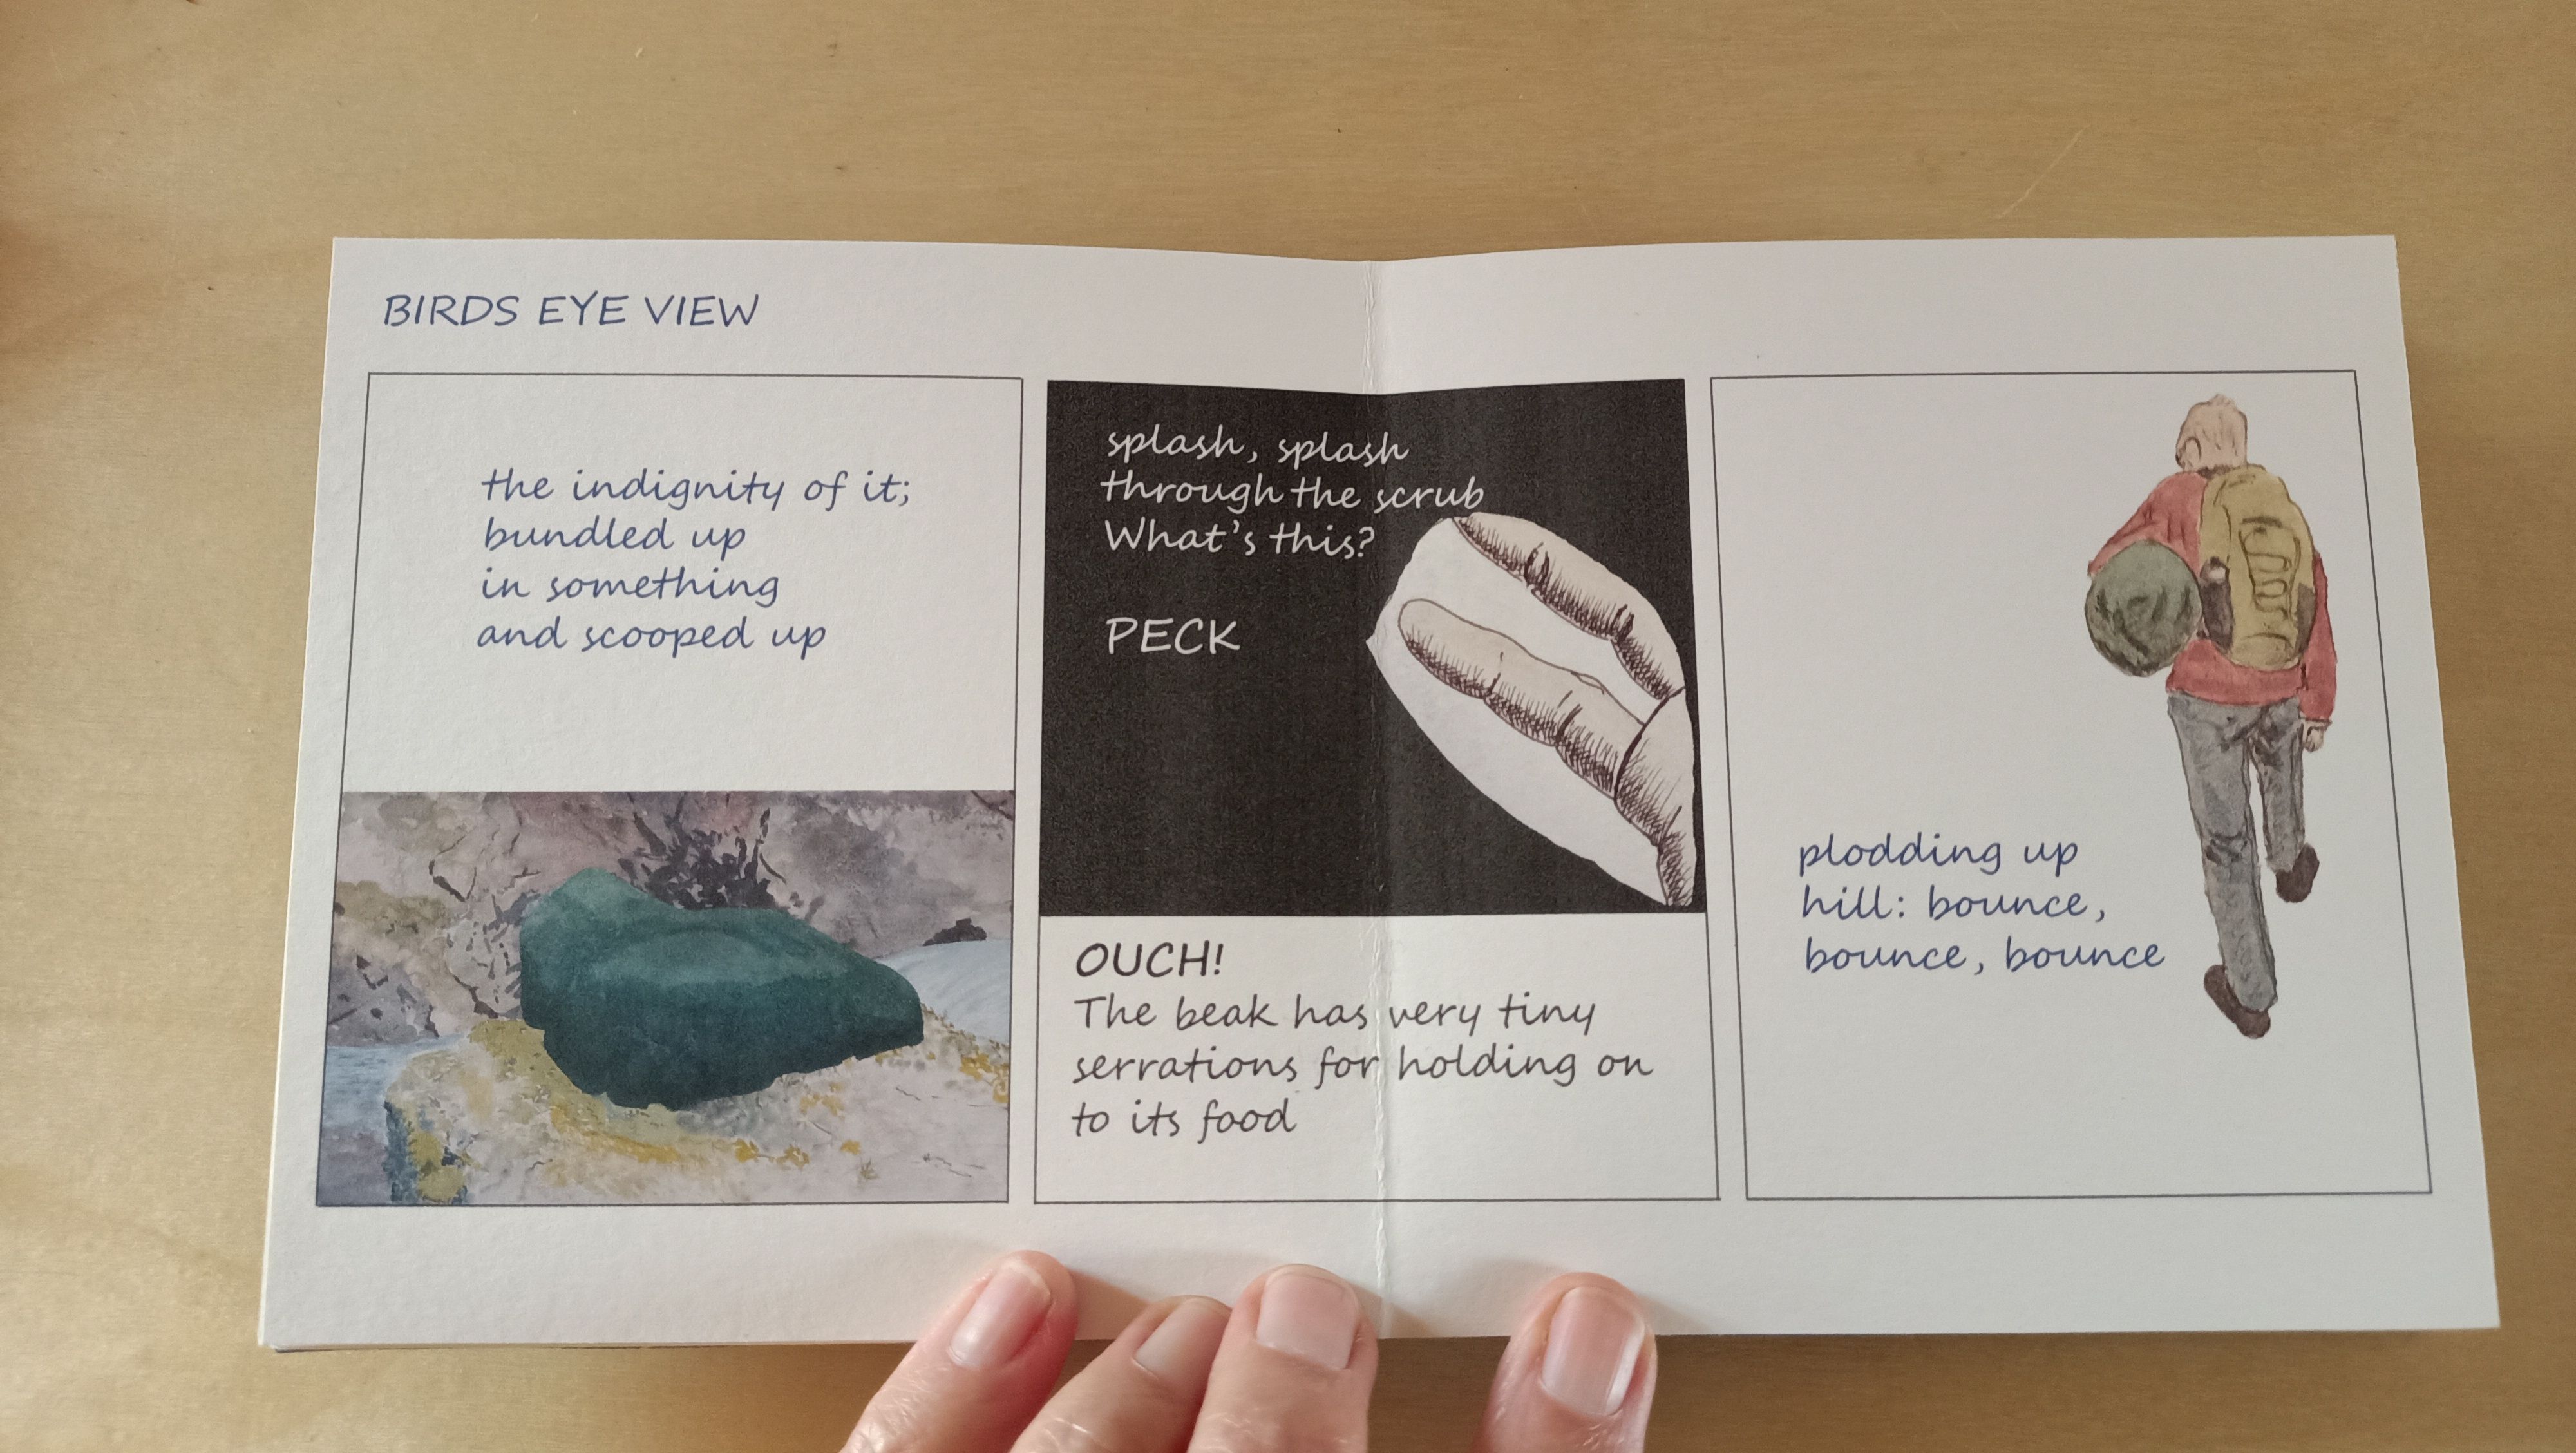 BIRDS EYE VIEW
the indignity of it;
bundled up
in something
and scooped up
splash, splash
through the scrub
What's this?
PECK
OUCH!
The beak has very tiny
serrations for holding on
to its food
plodding up
hill: bounce,
bounce, bounce